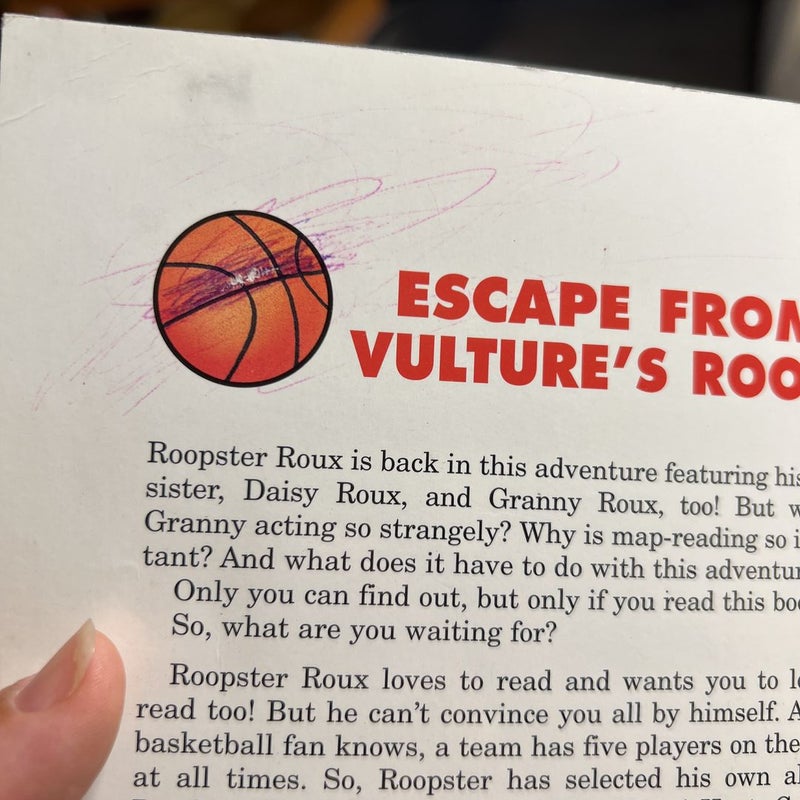 ESCAPE FROM
VULTURE'S ROO
Roopster Roux is back in this adventure featuring his
sister, Daisy Roux, and Granny Roux, too! But w
Granny acting so strangely? Why is map-reading so i
tant? And what does it have to do with this adventur
Only you can find out, but only if you read this boo
So, what are you waiting for?
Roopster Roux loves to read and wants you to l
read too! But he can't convince you all by himself. A
basketball fan knows, a team has five players on the
at all times. So, Roopster has selected his own al